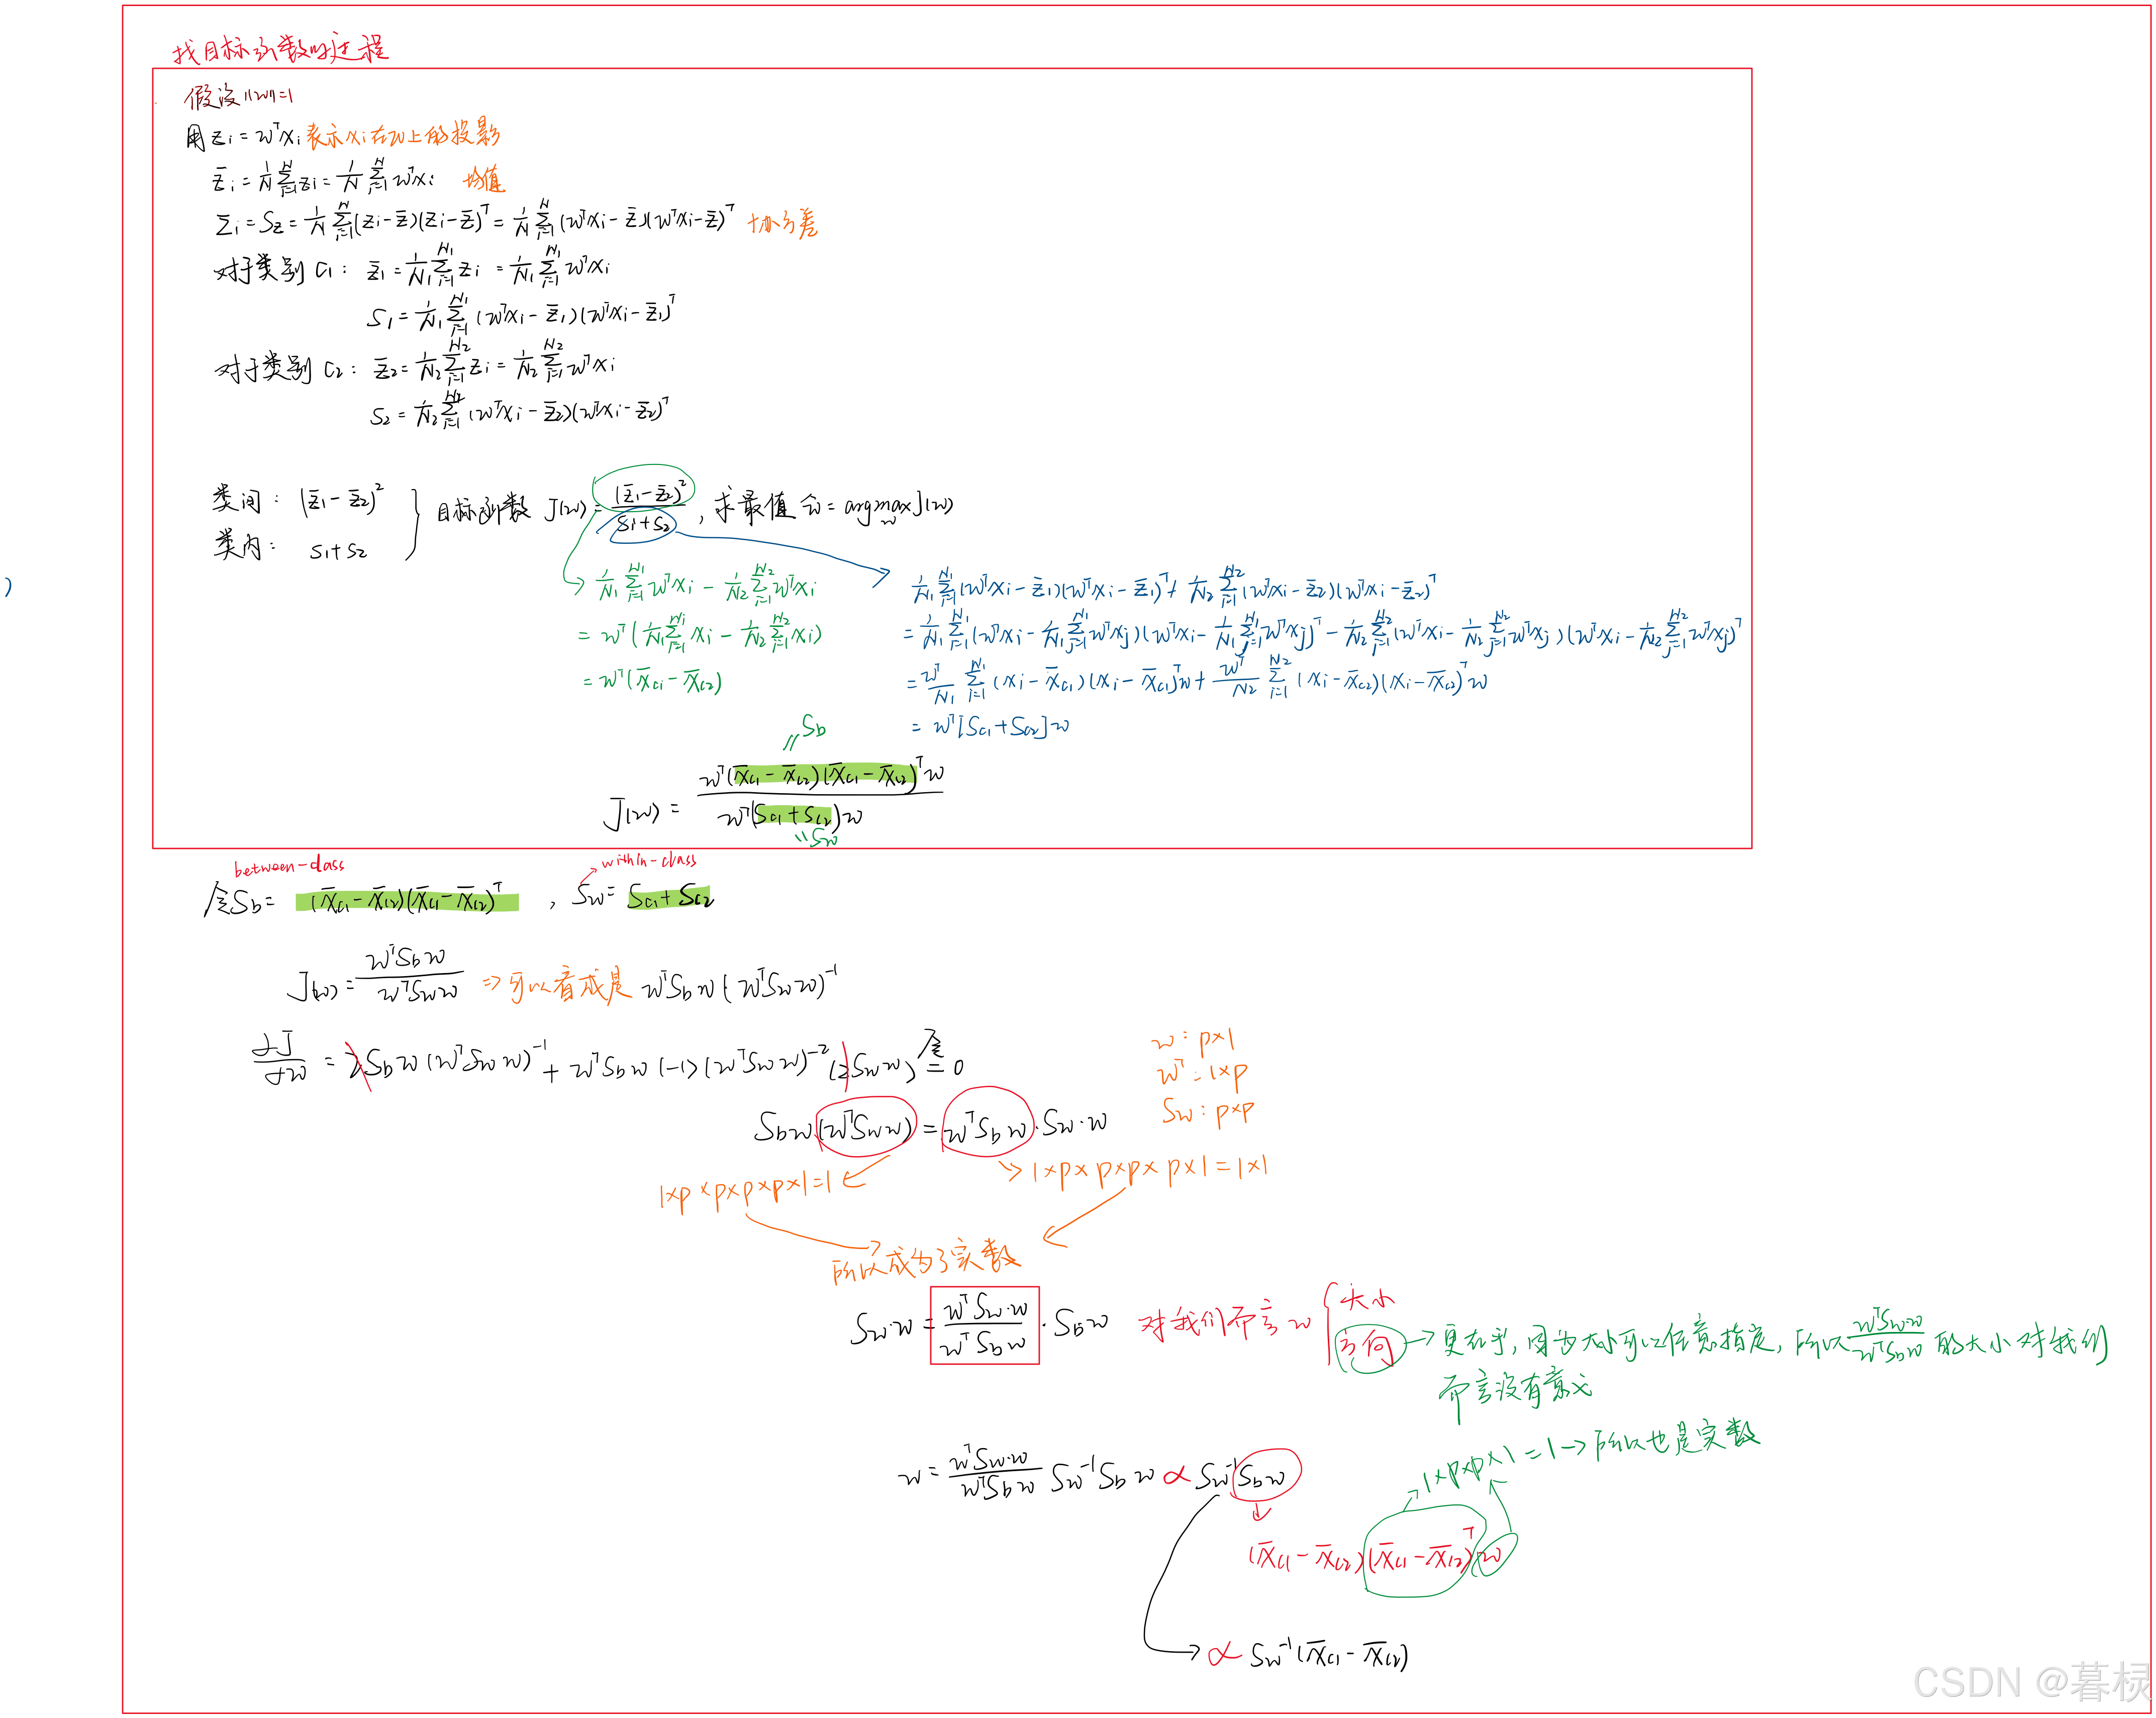 找目标函数的过程
假设 ||w||=1
用 zᵢ = wᵀxᵢ 表示 xᵢ 在w上的投影
z̄ᵢ = 1/N ∑ᵢ₌₁ᴺ zᵢ = 1/N ∑ᵢ₌₁ᴺ wᵀxᵢ 均值
Σᵢ = S_z = 1/N ∑ᵢ₌₁ᴺ (zᵢ-z̄)(zᵢ-z̄)ᵀ = 1/N ∑ᵢ₌₁ᴺ (wᵀxᵢ-z̄)(wᵀxᵢ-z̄)ᵀ 协方差
对于类别 C₁: z̄₁ = 1/N₁ ∑ᵢ₌₁ᴺ¹ zᵢ = 1/N₁ ∑ᵢ₌₁ᴺ¹ wᵀxᵢ
S₁ = 1/N₁ ∑ᵢ₌₁ᴺ¹ (wᵀxᵢ-z̄₁)(wᵀxᵢ-z̄₁)ᵀ
对于类别 C₂: z̄₂ = 1/N₂ ∑ᵢ₌₁ᴺ² zᵢ = 1/N₂ ∑ᵢ₌₁ᴺ² wᵀxᵢ
S₂ = 1/N₂ ∑ᵢ₌₁ᴺ² (wᵀxᵢ-z̄₂)(wᵀxᵢ-z̄₂)ᵀ
类间: (z̄₁-z̄₂)²
类内: S₁+S₂
目标函数 J(w) = (z̄₁-z̄₂)² / (S₁+S₂), 求最值 ŵ = argmax_w J(w)
)
1/N₁ ∑ᵢ₌₁ᴺ¹ wᵀxᵢ - 1/N₂ ∑ᵢ₌₁ᴺ² wᵀxᵢ
= wᵀ(1/N₁ ∑ᵢ₌₁ᴺ¹ xᵢ - 1/N₂ ∑ᵢ₌₁ᴺ² xᵢ)
= wᵀ(x̄_c₁ - x̄_c₂)
1/N₁ ∑ᵢ₌₁ᴺ¹ (wᵀxᵢ-z̄₁)(wᵀxᵢ-z̄₁)ᵀ + 1/N₂ ∑ᵢ₌₁ᴺ² (wᵀxᵢ-z̄₂)(wᵀxᵢ-z̄₂)ᵀ
= 1/N₁ ∑ᵢ₌₁ᴺ¹ (wᵀxᵢ - 1/N₁ ∑ⱼ₌₁ᴺ¹ wᵀxⱼ)(wᵀxᵢ - 1/N₁ ∑ⱼ₌₁ᴺ¹ wᵀxⱼ)ᵀ - 1/N₂ ∑ᵢ₌₁ᴺ² (wᵀxᵢ - 1/N₂ ∑ⱼ₌₁ᴺ² wᵀxⱼ)(wᵀxᵢ - 1/N₂ ∑ⱼ₌₁ᴺ² wᵀxⱼ)ᵀ
= wᵀ/N₁ ∑ᵢ₌₁ᴺ¹ (xᵢ-x̄_c₁)(xᵢ-x̄_c₁)ᵀw + wᵀ/N₂ ∑ᵢ₌₁ᴺ² (xᵢ-x̄_c₂)(xᵢ-x̄_c₂)ᵀw
= wᵀ[S_c₁+S_c₂]w
S_b
J(w) = wᵀ(x̄_c₁-x̄_c₂)(x̄_c₁-x̄_c₂)ᵀw / wᵀ(S_c₁+S_c₂)w
"S_w
between-class
within-class
令S_b = (x̄_c₁-x̄_c₂)(x̄_c₁-x̄_c₂)ᵀ , S_w = S_c₁+S_c₂
J(w) = wᵀS_b w / wᵀS_w w => 可以看成是 wᵀS_b w (wᵀS_w w)⁻¹
∂J/∂w = 2S_b w (wᵀS_w w)⁻¹ + wᵀS_b w (-1)(wᵀS_w w)⁻² (2S_w w) 令= 0
w: p×1
wᵀ: 1×p
S_w: p×p
S_b w (wᵀS_w w) = wᵀS_b w · S_w · w
1×p×p×p×p×1=1
1×p×p×p×p×1=1×1
所以成为了实数
S_w·w = wᵀS_w·w / wᵀS_b w · S_b w 对我们而言 w { 大小
方向 → 更在乎, 因为大小可以任意指定, 所以 wᵀS_w·w / wᵀS_b w 的大小对我们
而言没有意义
w = wᵀS_w·w / wᵀS_b w S_w⁻¹S_b w ∝ S_w⁻¹ S_b w
1×p×p×1=1→所以也是实数
(x̄_c₁-x̄_c₂)(x̄_c₁-x̄_c₂)ᵀw
∝ S_w⁻¹(x̄_c₁-x̄_c₂)
CSDN @暮棂